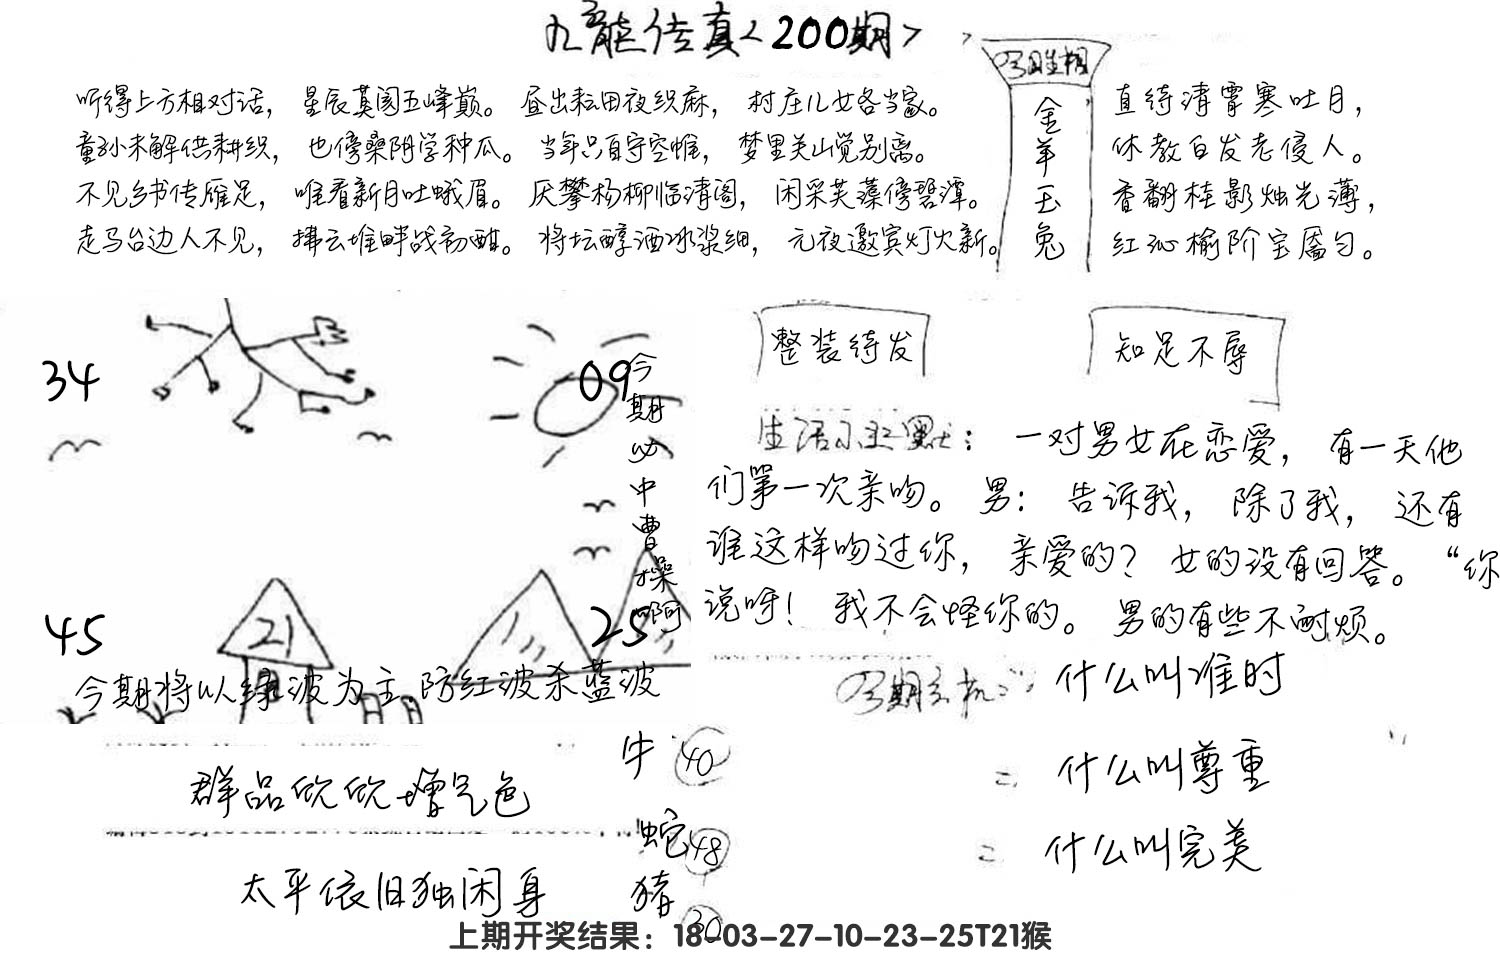 九龙传真<200期>
听得上方相对话，星辰莫阂五峰巅。昼出耘田夜织麻，村庄儿女各当家。
童孙未解供耕织，也傍桑阴学种瓜。当年只自守空帷，梦里关山觉别离。
不见乡书传雁足，唯看新月吐蛾眉。厌攀杨柳临清阁，闲采芙蕖傍碧潭。
走马台边人不见，拂云堆畔战初酣。将坛醇酒冰浆细，元夜邀宾灯火新。
金羊玉兔
直待清霄寒吐月，
休教白发老侵人。
香翻桂影烛光薄，
红沁榆阶宝靥匀。
34
09
45
25
21
今期必中曹操啊
今期将以绿波为主防红波杀蓝波
整装待发
知足不辱
生活小幽默：一对男女在恋爱，有一天他
们第一次亲吻。男：告诉我，除了我，还有
谁这样吻过你，亲爱的？女的没有回答。“你
说呀！我不会怪你的。男的有些不耐烦。
今期玄机：什么叫准时
= 什么叫尊重
= 什么叫完美
群品欣欣增气色
太平依旧独闲身
牛 40
蛇 48
猪 30
上期开奖结果：18-03-27-10-23-25T21猴